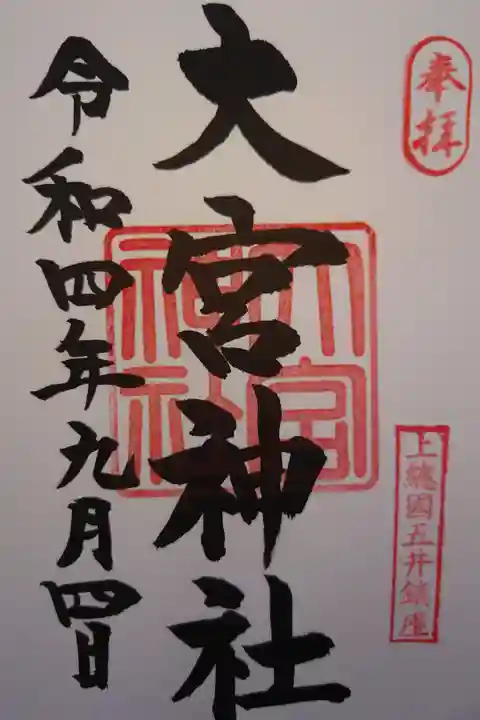 奉拝
上總國五井鎮座
大宮神社
大宮神社
令和四年九月四日